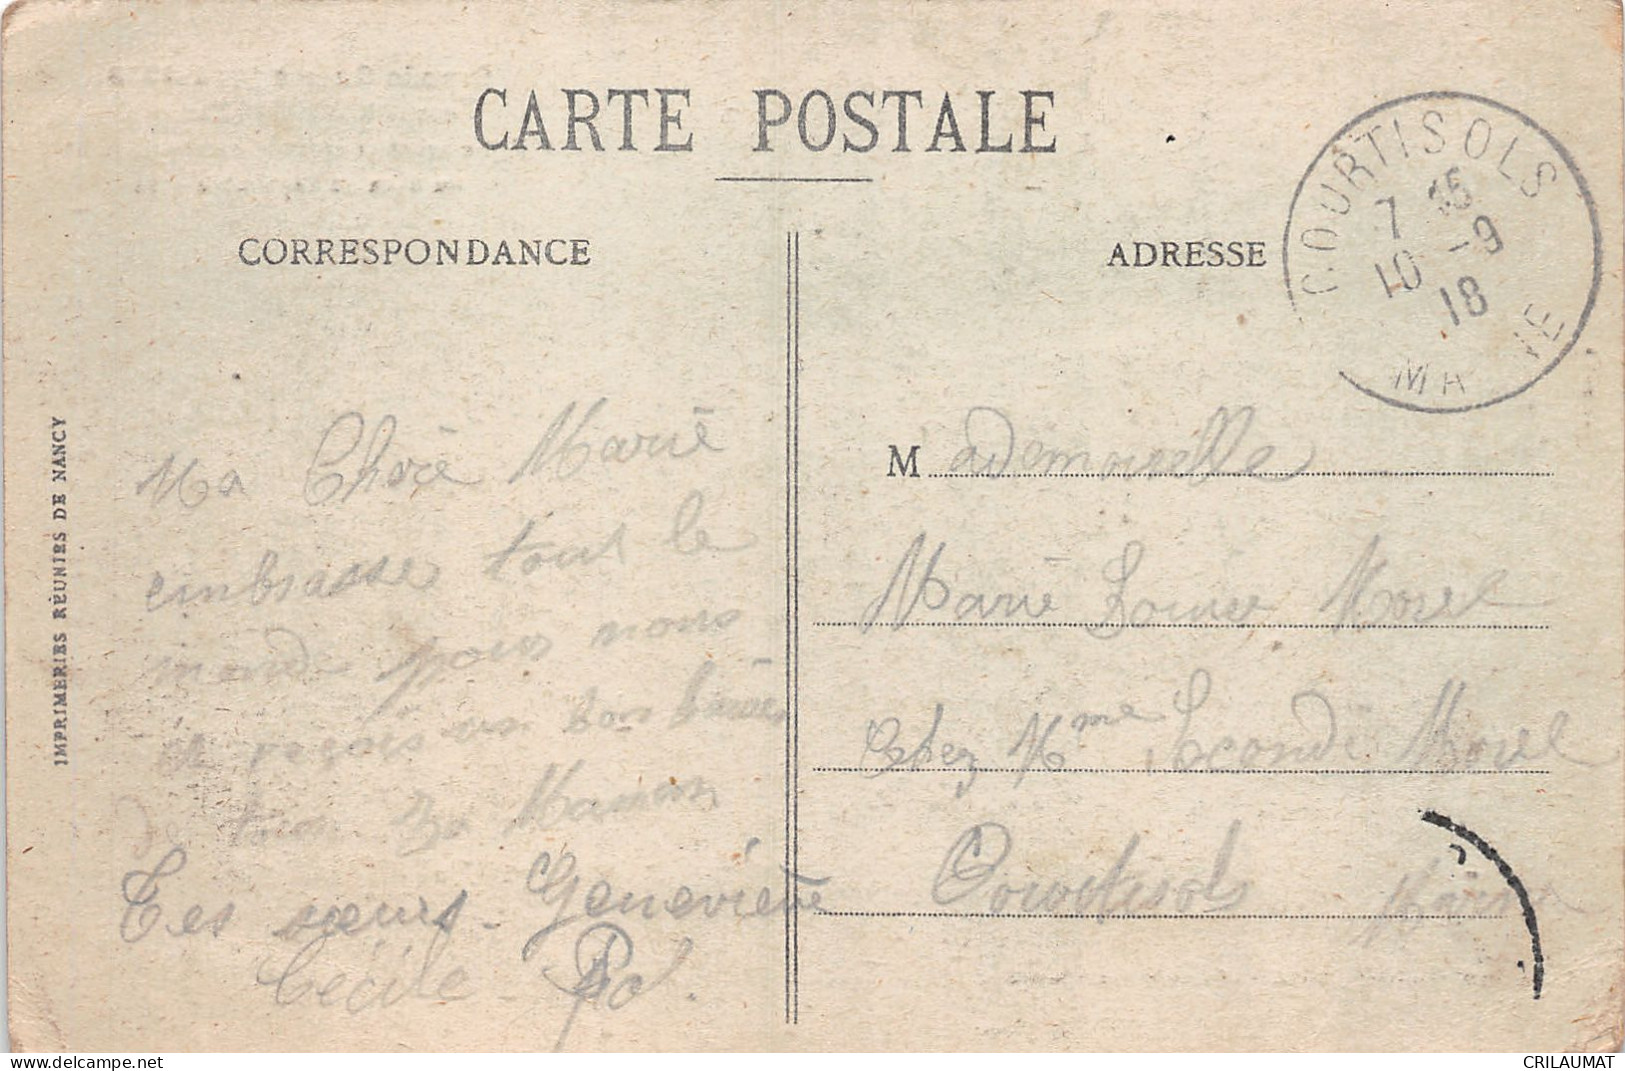 CARTE POSTALE
CORRESPONDANCE
ADRESSE
COURTISOLS
7 15
10 -9
18
MA NE
IMPRIMERIES RÉUNIES DE NANCY
Ma Chère Marie
embrasse tout le
monde pour nous
et reçois un bon baiser
de tous Ta Maman
Tes sœurs Geneviève
Cécile
Mademoiselle
Marie Louise Morel
Chez Mme Secondé Morel
Courtisols
Marne
delcampe.net
CRILAUMAT